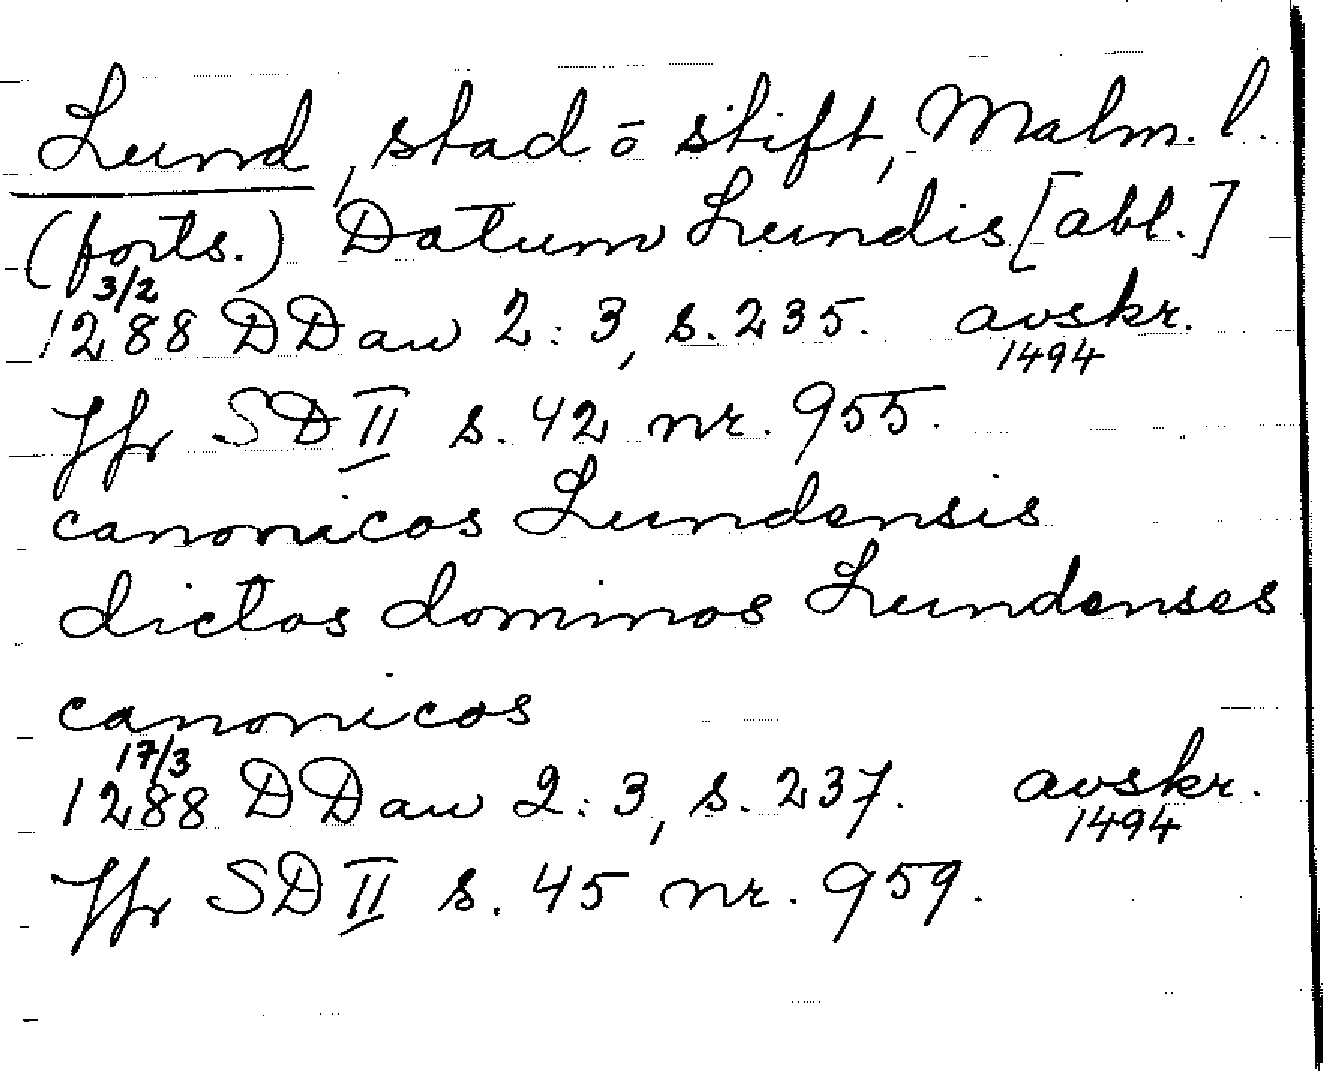 Lund, stad ō stift, Malm. l.
(forts.) Datum Lundis [abl.]
3/2
1288 DDan 2:3, s. 235. avskr.
1494
Jfr SD II s. 42 nr. 955.
canonicos Lundensis
dictos dominos Lundenses
canonicos
17/3
1288 DDan 2:3, s. 237. avskr.
1494
Jfr SD II s. 45 nr. 959.